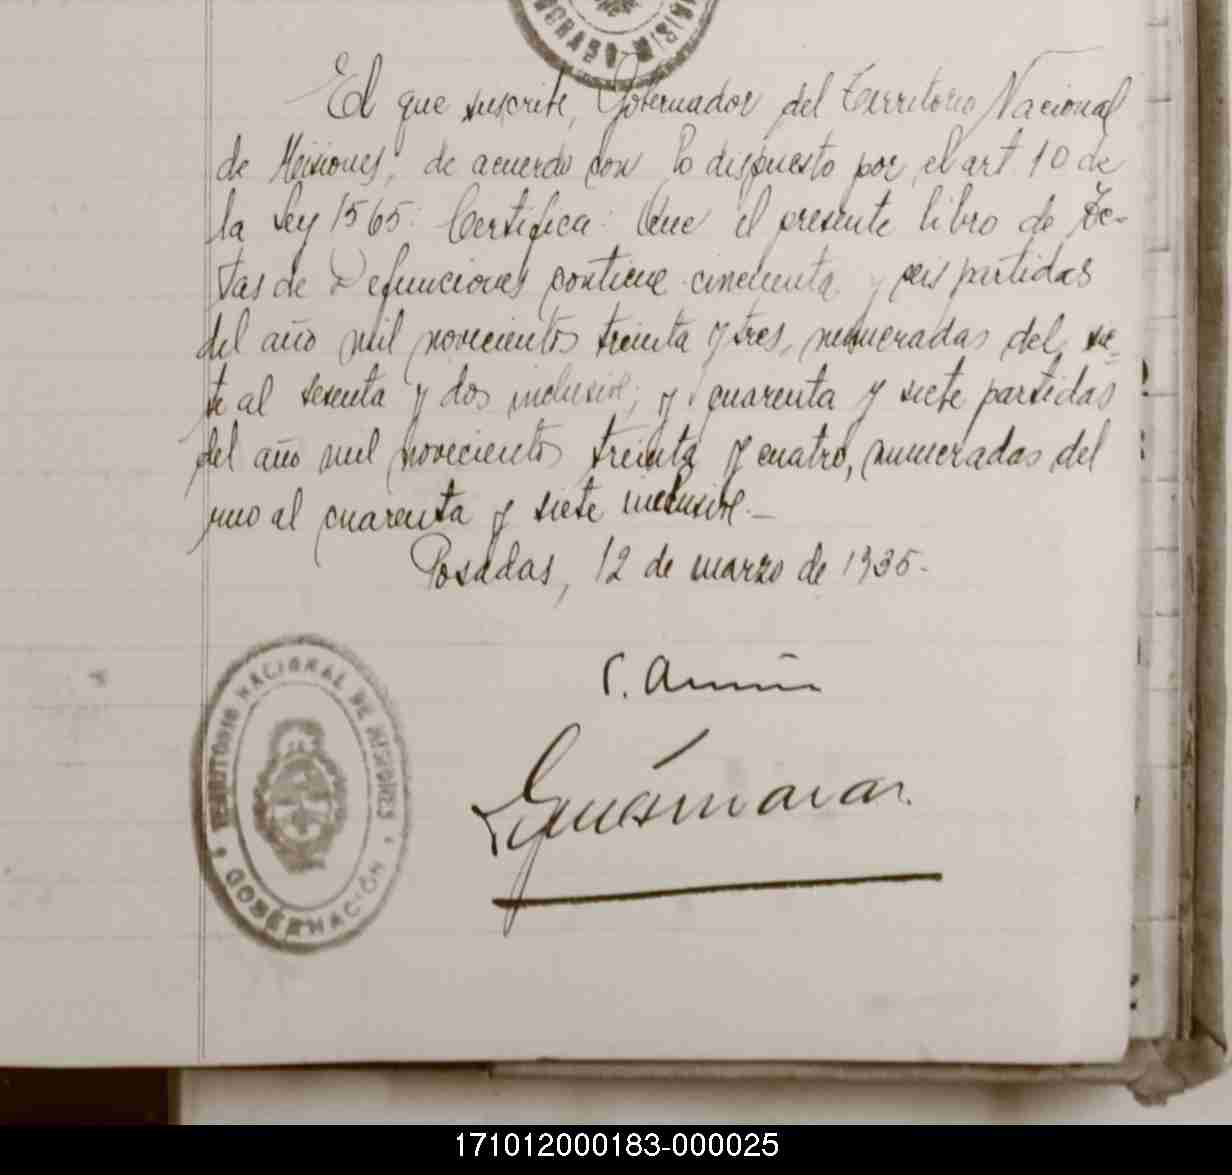 El que suscribe, Gobernador del Territorio Nacional
de Misiones, de acuerdo con lo dispuesto por el art. 10 de
la Ley 1565: Certifica: Que el presente libro de Ac-
tas de Defunciones contiene cincuenta y seis partidas
del año mil novecientos treinta y tres, numeradas del sie-
te al sesenta y dos inclusive; y cuarenta y siete partidas
del año mil novecientos treinta y cuatro, numeradas del
uno al cuarenta y siete inclusive.-
Posadas, 12 de marzo de 1935.-
TERRITORIO NACIONAL DE MISIONES
GOBERNACIÓN
171012000183-000025